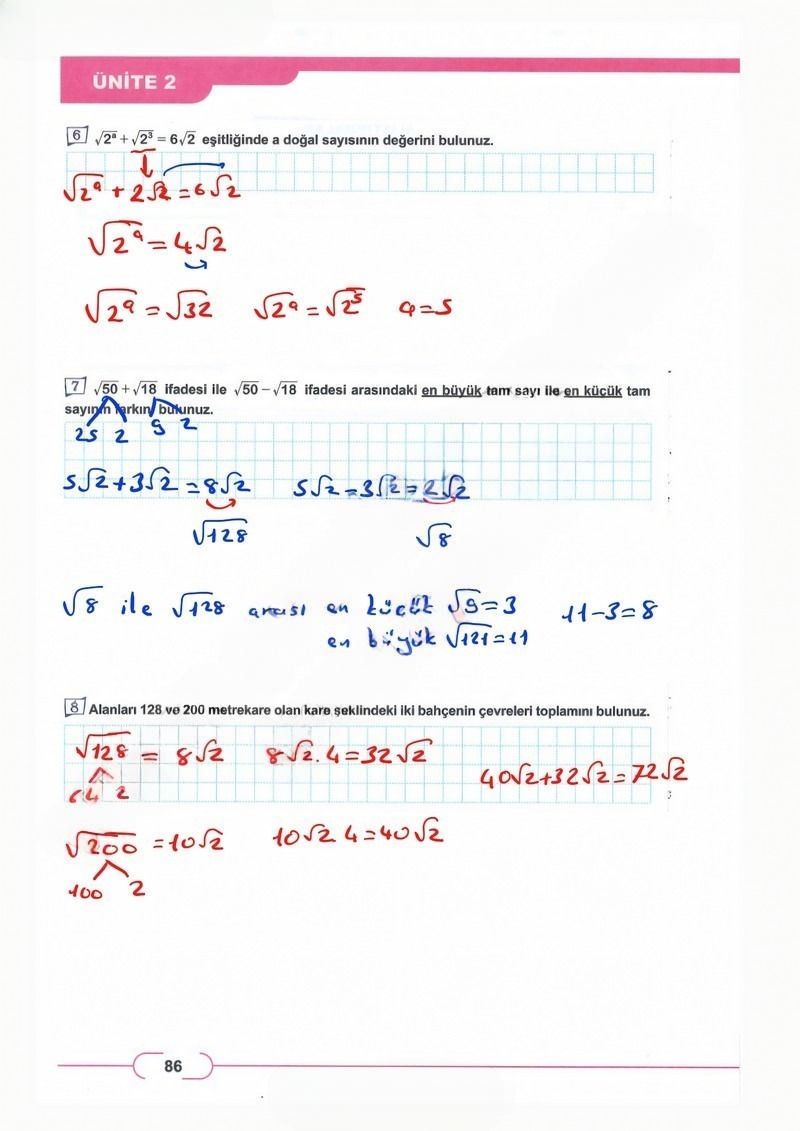 ÜNİTE 2
6 √2ᵃ + √2³ = 6√2 eşitliğinde a doğal sayısının değerini bulunuz.
√2ᵃ + 2√2 = 6√2
√2ᵃ = 4√2
√2ᵃ = √32 √2ᵃ = √2⁵ a=5
7 √50 + √18 ifadesi ile √50 − √18 ifadesi arasındaki en büyük tam sayı ile en küçük tam
sayının farkını bulunuz.
25 2 9 2
5√2+3√2 = 8√2 5√2 − 3√2 = 2√2
√128 √8
√8 ile √128 arası en küçük √9=3 11-3=8
en büyük √121=11
8 Alanları 128 ve 200 metrekare olan kare şeklindeki iki bahçenin çevreleri toplamını bulunuz.
√128 = 8√2 8√2.4=32√2
40√2+32√2=72√2
64 2
√200 =10√2 10√2 4=40√2
100 2
86